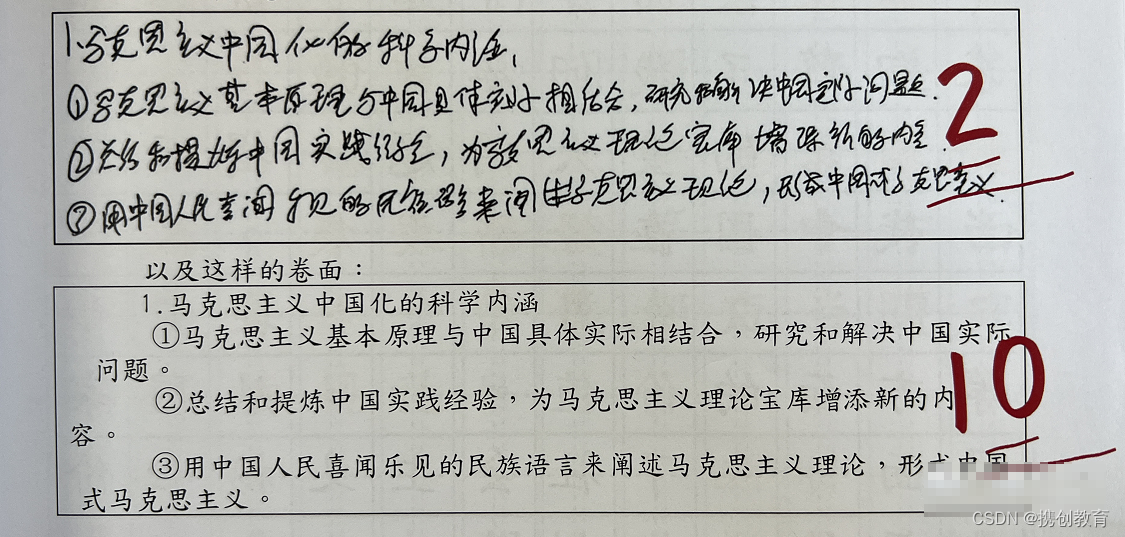 1.马克思主义中国化的科学内涵
①马克思主义基本原理与中国具体实际相结合,研究和解决中国实际问题.
②总结和提炼中国实践经验,为马克思主义理论宝库增添新的内容.
2
③用中国人民喜闻乐见的民族语言来阐述马克思主义理论,形成中国式马克思主义.
以及这样的卷面:
1.马克思主义中国化的科学内涵
①马克思主义基本原理与中国具体实际相结合,研究和解决中国实际
问题。
②总结和提炼中国实践经验,为马克思主义理论宝库增添新的内
容。
10
③用中国人民喜闻乐见的民族语言来阐述马克思主义理论,形成中国
式马克思主义。
CSDN @携创教育